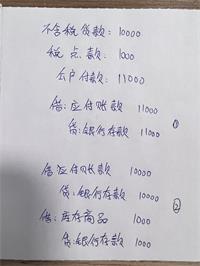 不含税货款：10000
税点款：1000
公户付款：11000
借：应付账款 11000
贷：银行存款 11000
①
借：应付账款 10000
贷：银行存款 10000
②
借：库存商品 1000
贷：银行存款 1000